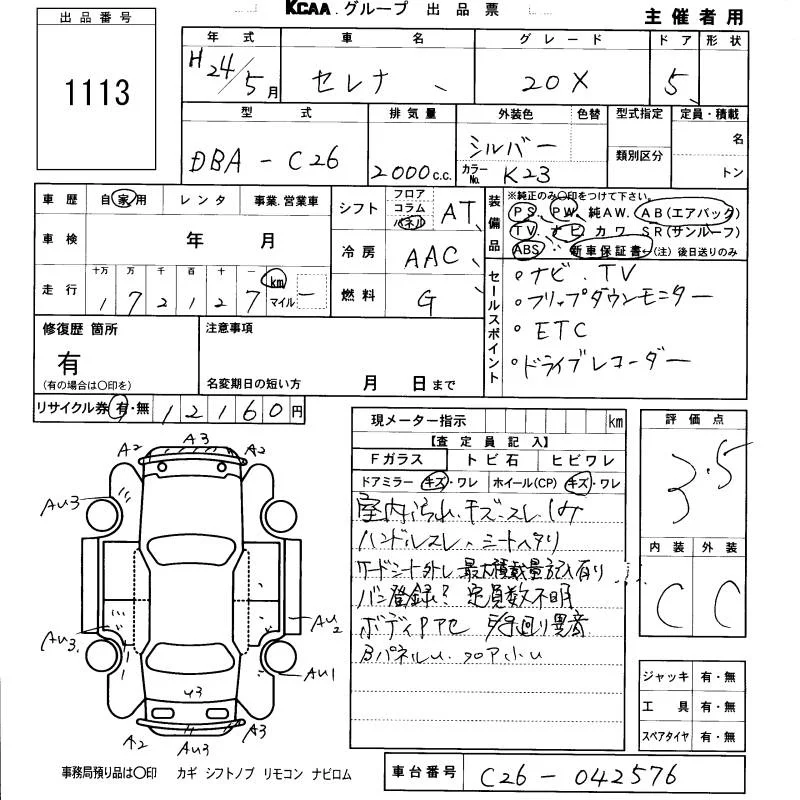 KCAA.グループ 出品票
主催者用
出品番号
1113
年式 車名 グレード ドア 形状
H24/5月 セレナ 20X 5
型式 排気量 外装色 色替 型式指定 定員・積載
DBA-C26 2000c.c. シルバー 名
カラーNo. K23 類別区分 トン
車歴 自家用 レンタ 事業.営業車
シフト フロア コラム パネル AT
車検 年 月
冷房 AAC
走行 十万 万 千 百 十 一 km マイル
172127
燃料 G
装備品
※純正のみ〇印をつけて下さい。
PS、PW、純AW、AB(エアバック)
TV、ナビ、カワ、SR(サンルーフ)
ABS、新車保証書←(注)後日送りのみ
セールスポイント
・ナビ.TV
・フリップダウンモニター
・ETC
・ドライブレコーダー
修復歴 箇所
有
(有の場合は〇印を)
注意事項
名変期日の短い方 月 日まで
リサイクル券 有・無 12160円
現メーター指示 km
【査定員記入】
Fガラス トビ石 ヒビワレ
ドアミラー キズ・ワレ ホイール(CP) キズ・ワレ
室内汚れ.キズ.スレ.シミ
ハンドルスレ、シートヘタリ
サードシート外し 最大積載量記入有り
バン登録? 定員数不明
ボディ
廻り異音
BパネルU.
評価点
3.5
内装 外装
C C
ジャッキ 有・無
工具 有・無
スペアタイヤ 有・無
A2 A3 A2
AU3
AU3
AU2
AU1
U3
A2 AU3 A3
事務局預り品は〇印 カギ シフトノブ リモコン ナビロム
車台番号 C26-042576